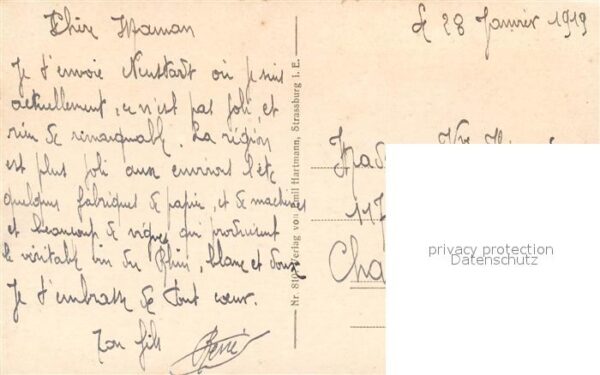 Chère Maman
le 28 Janvier 1919
Je t'envoie Neustadt où je suis
actuellement, ce n'est pas joli, et
rien de remarquable. La région
est plus joli aux environs l'été
quelques fabriques de papier, et de machines
et beaucoup de vignes qui produisent
le véritable vin du Rhin, blanc et doux
Je t'embrasse de tout coeur.
Ton fils
René
Nr. Verlag von Emil Hartmann, Strassburg i. E.
Mada Vve
117
Cha
privacy protection
Datenschutz